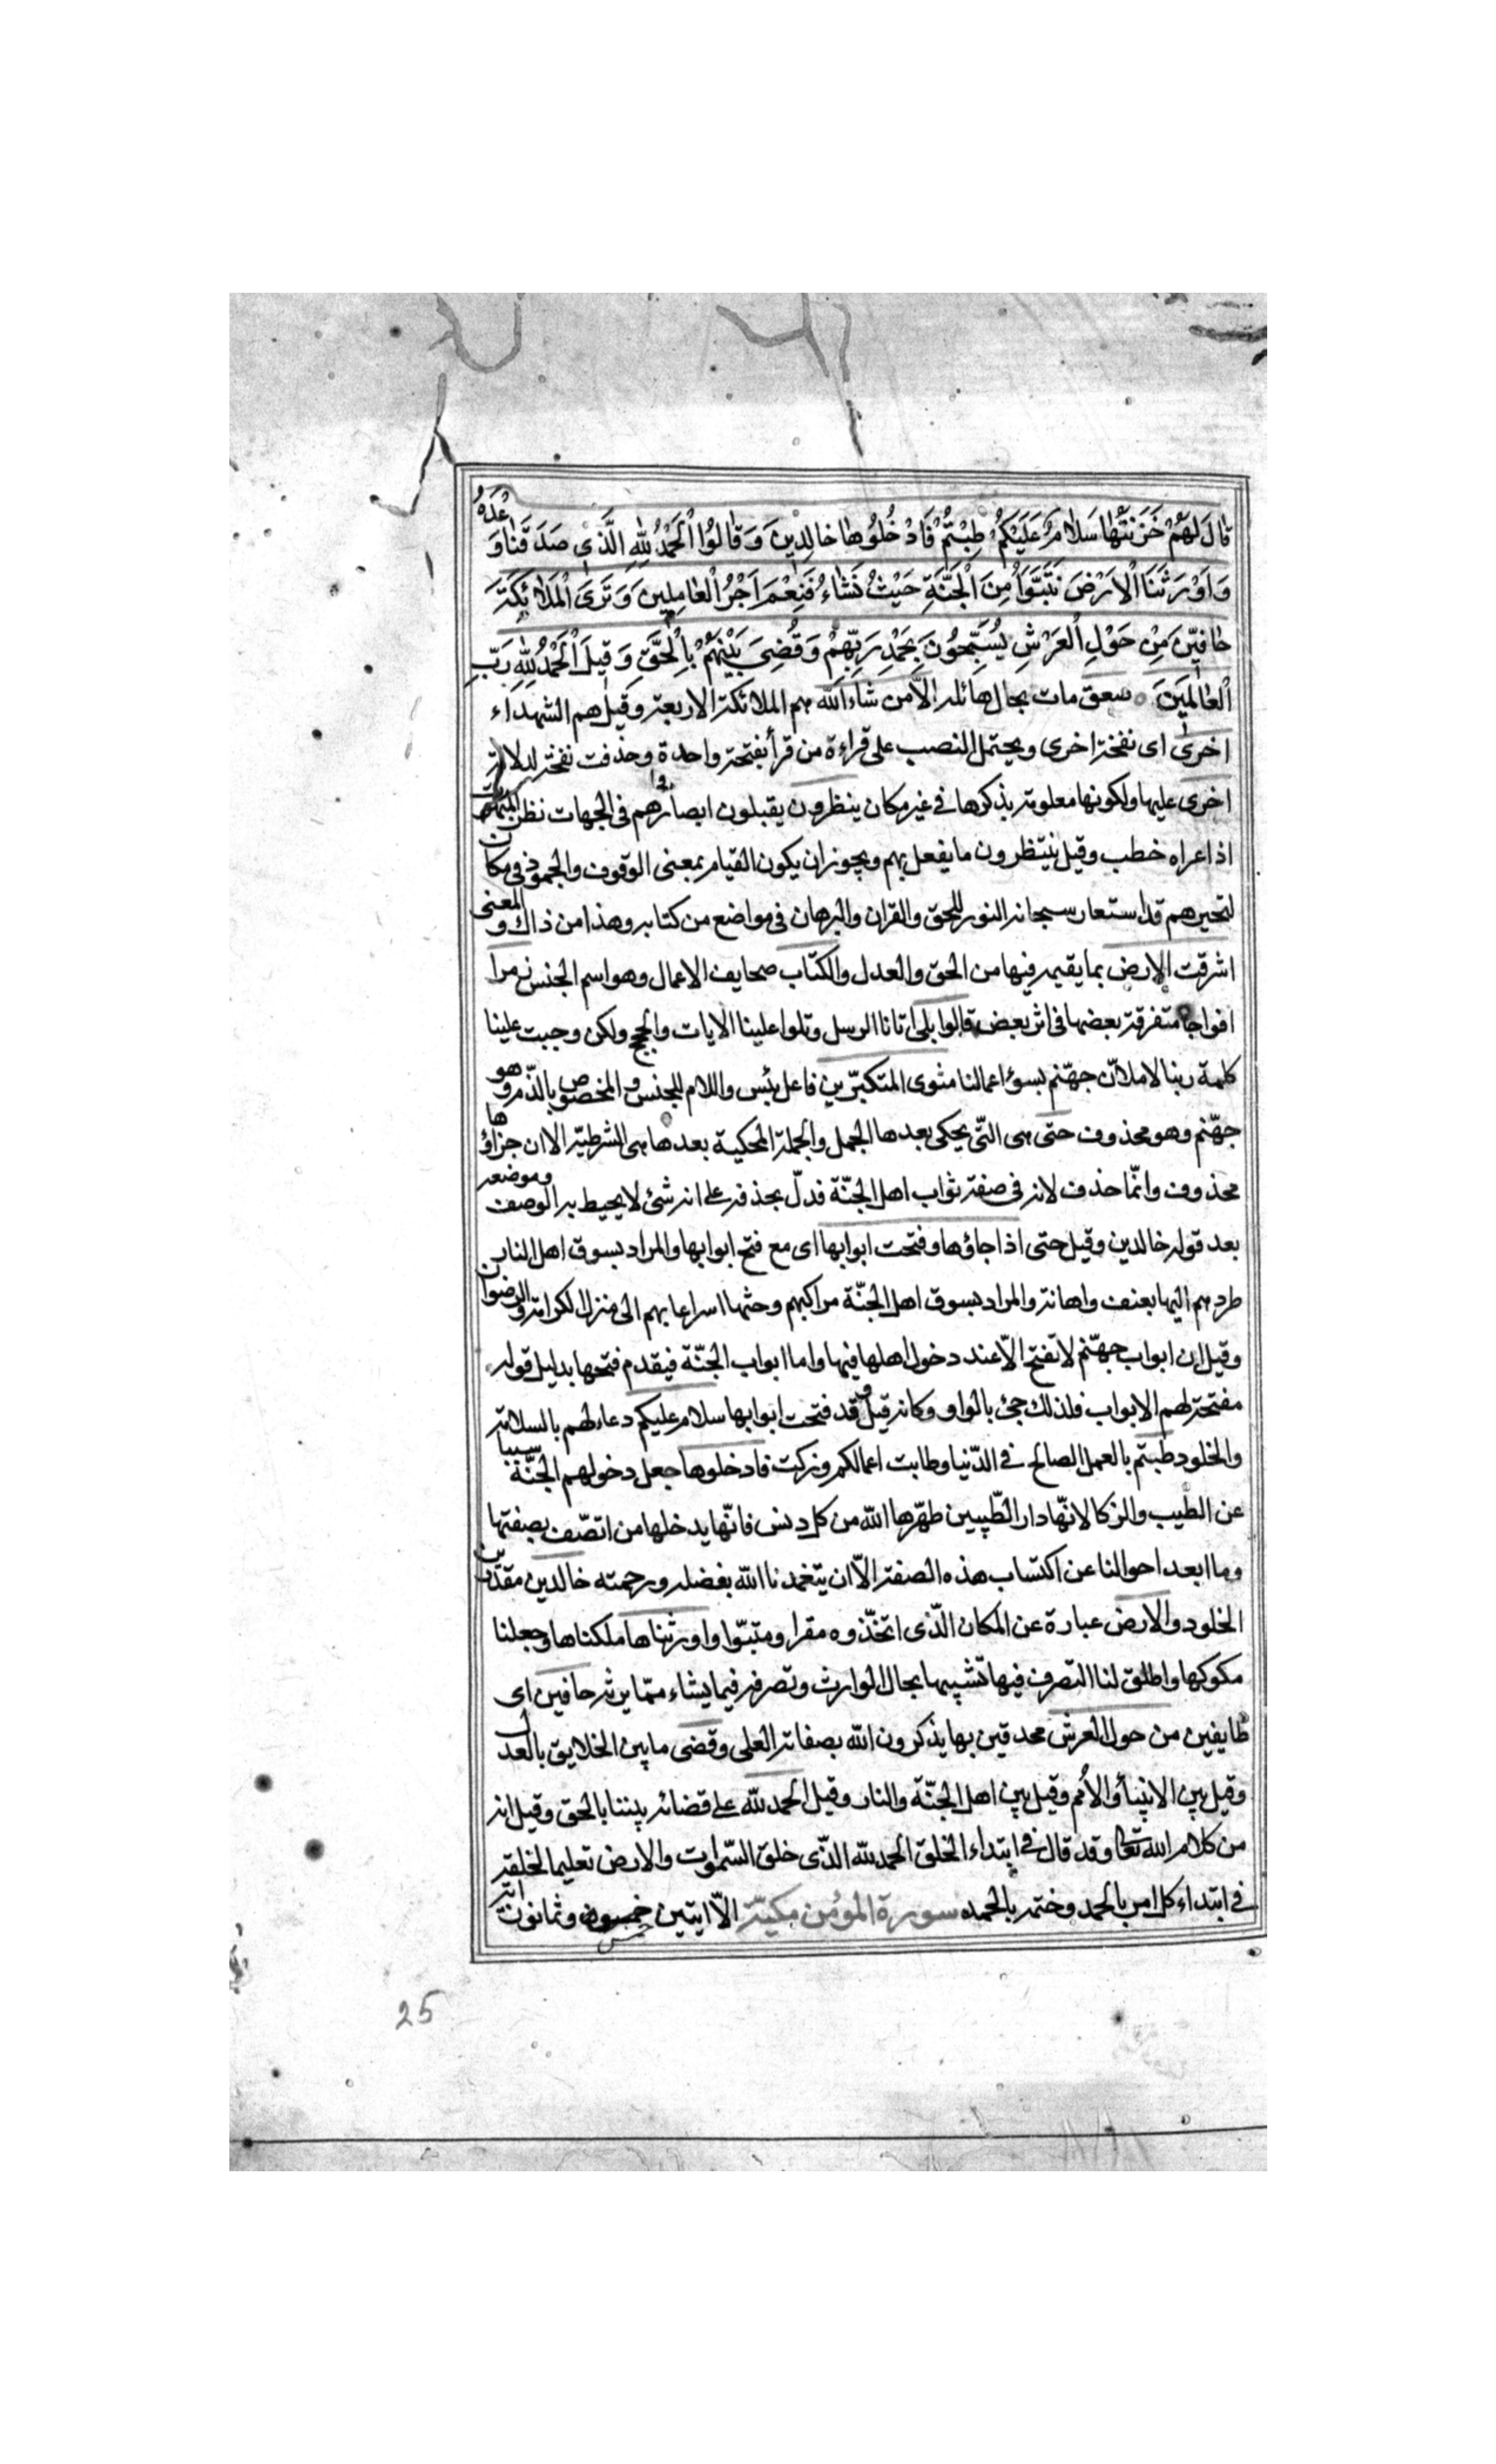 قٰالَ لَهُمْ خَزَنَتُهٰا سَلٰامٌ عَلَيْكُمْ طِبْتُمْ فَادْخُلُوهٰا خٰالِدِينَ وَ قٰالُوا الْحَمْدُ لِلّٰهِ الَّذِي صَدَقَنٰا وَعْدَهُ
وَ اَوْرَثَنَا الْاَرْضَ نَتَبَوَّأُ مِنَ الْجَنَّةِ حَيْثُ نَشٰاءُ فَنِعْمَ اَجْرُ الْعٰامِلِينَ وَ تَرَى الْمَلٰائِكَةَ
حٰافِّينَ مِنْ حَوْلِ الْعَرْشِ يُسَبِّحُونَ بِحَمْدِ رَبِّهِمْ وَ قُضِيَ بَيْنَهُمْ بِالْحَقِّ وَ قِيلَ الْحَمْدُ لِلّٰهِ رَبِّ
الْعٰالَمِينَ ۝ سعق مات بحال هائلة الاّ من شاء الله هم الملائكة الاربعة وقيل هم الشهداء
اخرى اى نفخة اخرى ويحتمل النصب على قراءة من قرأ نفختر واحدة وحذفت نفخة لدلالة
اخرى عليها ولكونها معلومة بذكرها فى غير مكان ينظرون يقبلون ابصارهم فى الجهات نظر المبهوت
اذا عراه خطب وقيل ينتظرون ما يفعل بهم ويجوز ان يكون القيام بمعنى الوقوف والجمود فى مكان
لتحيرهم قد استعار سبحانه النور للحق والقران والبرهان فى مواضع من كتابه وهذا من ذاك والمعنى
اشرقت الارض بما يقيمه فيها من الحق والعدل والكتاب صحايف الاعمال وهو اسم الجنس زمرا
افواجا متفرقة بعضها فى اثر بعض قالوا بلى اتانا الرسل وتلوا علينا الايات والحجج ولكن وجبت علينا
كلمة ربنا لاملانّ جهنّم بسوء اعمالنا مثوى المتكبّرين فاعل بئس واللام للجنس والمخصوص بالذّم وهو
جهنّم وهو محذوف حتى هى التّى يحكى بعدها الجمل والجملة المحكية بعدها هى الشرطيّة الا ان جزاؤها
محذوف وانّما حذف لانه فى صفة ثواب اهل الجنّة فدلّ بحذفه على انه شئ لا يحيط به الوصف وموضعه
بعد قوله خالدين وقيل حتى اذا جاؤها وفتحت ابوابها اى مع فتح ابوابها والمراد بسوق اهل النار
طردهم اليها بعنف واهانة والمراد بسوق اهل الجنّة مراكبهم وحثها اسراعا بهم الى منزل الكرامة والرضوان
وقيل ان ابواب جهنّم لا تفتح الاّ عند دخول اهلها فيها واما ابواب الجنّة فيقدم فتحها بدليل قوله
مفتحة لهم الابواب فلذلك جئ بالواو وكانه قيل وقد فتحت ابوابها سلام عليكم دعاء لهم بالسلامة
والخلود طبتم بالعمل الصالح فى الدّنيا وطابت اعمالكم وزكت فادخلوها جعل دخولهم الجنّة سببا
عن الطيب والزكا لانّها دار الطّيبين طهّرها الله من كل دنس فانّها يدخلها من اتصّف بصفتها
وما ابعد احوالنا عن اكتساب هذه الصفة الاّ ان يتغمدنا الله بفضله ورحمته خالدين مقدّرين
الخلود والارض عبارة عن المكان الذّى اتخذّوه مقرا ومتبوّا واورثناها ملكناها وجعلنا
مكوكها واطلق لنا التصرف فيها تشبيها بحال الوارث وتصرفه فيما يشاء ممّا يرثه حافين اى
طايفين من حول العرش محدقين بها يذكرون الله بصفاته العلى وقضى ما بين الخلايق بالعدل
وقيل بين الانبيأ والأمم وقيل بين اهل الجنّة والنار وقيل الحمد لله على قضائه بيننا بالحق وقيل انه
من كلام الله تعا وقد قال فى ابتداء الخلق الحمد لله الذّى خلق السّموات والارض تعليما لخلقه
فى ابتداء كل امر بالحمد وختمه بالحمده سورة المؤمن مكيّة الاّ ايتين خمس وثمانون اية
25